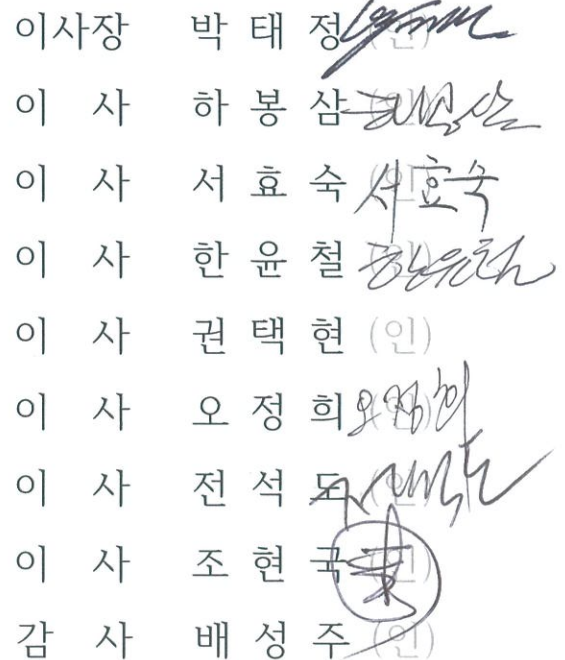 이사장 박태정 (인)
이 사 하봉삼 (인) 하봉삼
이 사 서효숙 (인) 서효숙
이 사 한윤철 (인) 한윤철
이 사 권택현 (인)
이 사 오정희 (인) 오정희
이 사 전석도 (인)
이 사 조현국 (인)
감 사 배성주 (인)